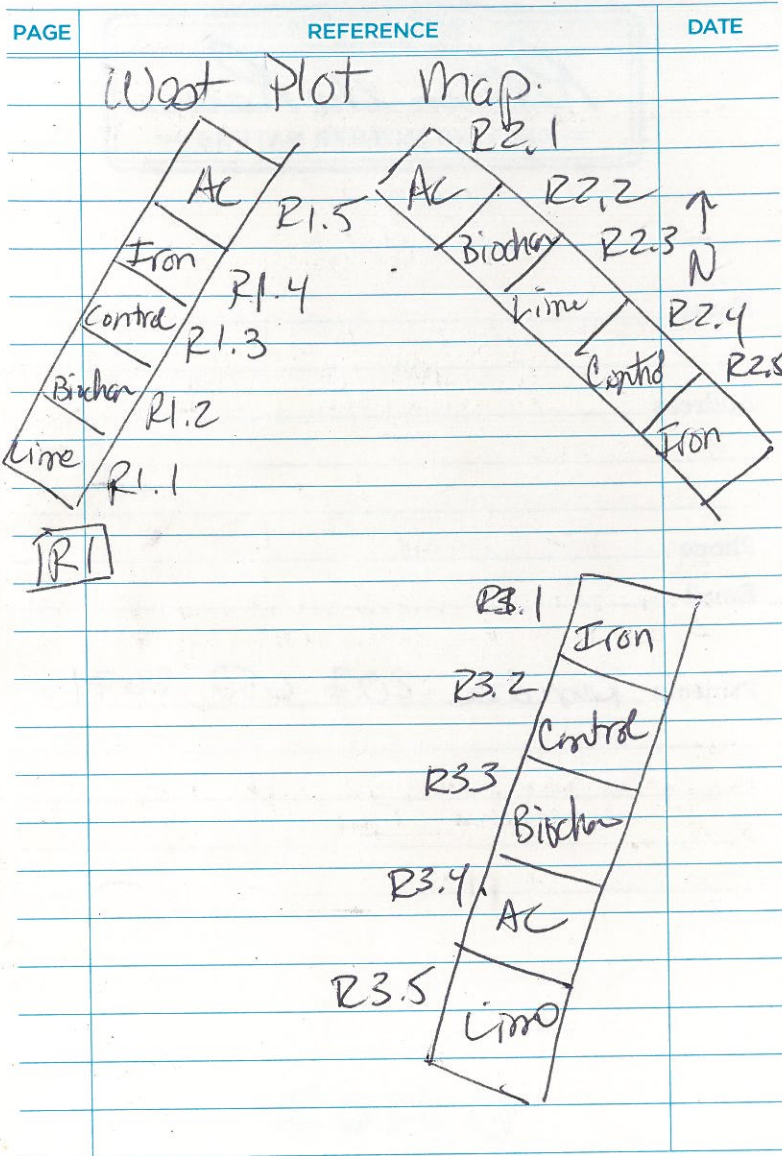 PAGE REFERENCE DATE
West Plot Map.
AC R1.5
Iron R1.4
Control R1.3
Biochar R1.2
Lime R1.1
R1
AC R2.1
Biochar R2.2
Lime R2.3
Control R2.4
Iron R2.5
↑
N
R3.1 Iron
R3.2 Control
R3.3 Biochar
R3.4 AC
R3.5 Lime